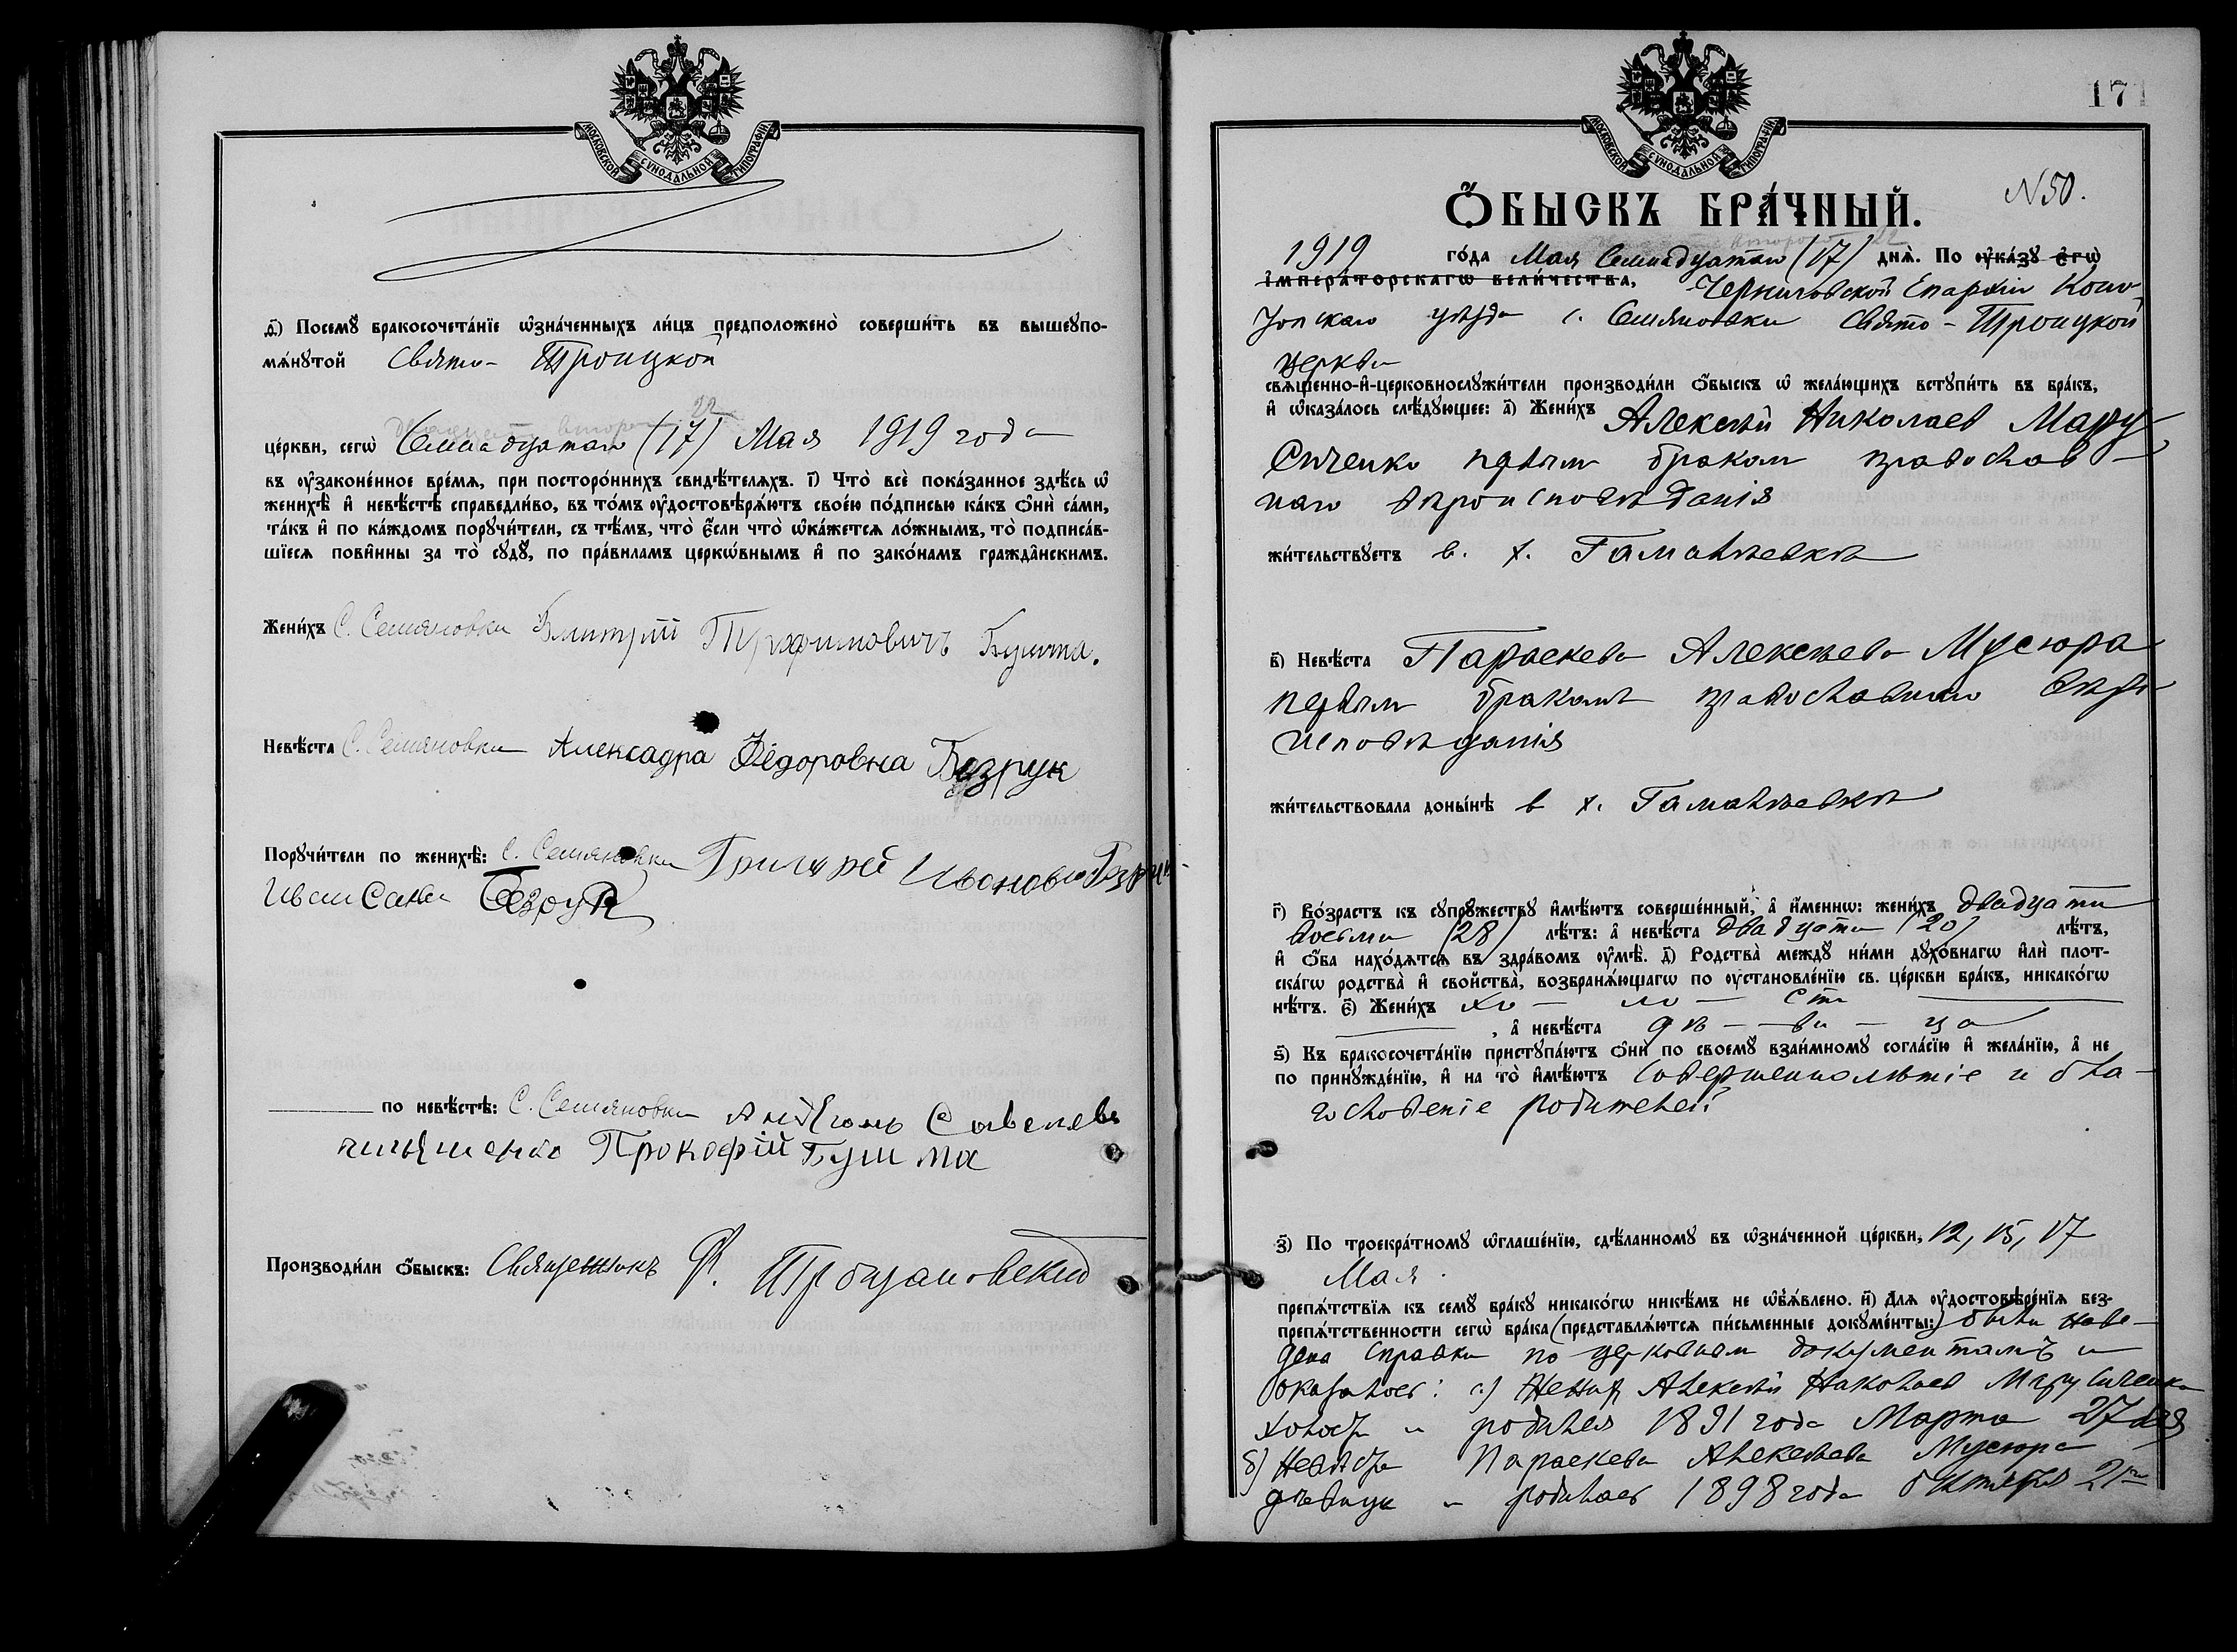 МОСКОВСКОЙ СѴНОДАЛЬНОЙ ТИПОГРАФІИ
д҃і) Посемꙋ̀ бракосочета́нїе ѡ҆зна́ченныхъ ли́цъ предположено̀ соверши́ть въ вышеꙋпо-
мѧ́нꙋтой Свято- Троицкой
22
двадцать второго
це́ркви, сегѡ̀ Семнадцатаго (17) Мая 1919 года
въ оу҆зако́ненное вре́мѧ, при посторо́ннихъ свидѣ́телѧхъ. і҃) Что̀ всѐ пока́занное здѣ́сь ѡ҆
женихѣ̀ и҆ невѣ́стѣ справедли́во, въ то́мъ оу҆достовѣрѧ́ютъ свое́ю по́дписью ка́къ ѻ҆нѝ са́ми,
та́къ и҆ по ка́ждомъ порꙋчи́тели, съ тѣ́мъ, что̀ є҆́сли что̀ ѡ҆ка́жетсѧ ло́жнымъ, то̀ подписа́в-
шїесѧ пови́нны за то̀ сꙋдꙋ̀, по пра́виламъ церко́внымъ и҆ по зако́намъ гражда́нскимъ.
Жени́хъ С. Семяновки Дмитрий Трофимовичъ Бушма.
Невѣ́ста С. Семяновки Алексадра Федоровна Безрук
Порꙋчи́тели по женихѣ̀: С. Семяновки Григорей Ивановъ Безрук
Иван Безрук
по невѣ́стѣ: С. Семяновки
Прокофій Бушма
Производи́ли ѻ҆́быскъ: Священникъ Ѳ. Троцановский
171
МОСКОВСКОЙ СѴНОДАЛЬНОЙ ТИПОГРАФІИ
Ѻ҆́БЫСКЪ БРА́ЧНЫЙ.
N 50.
22
1919 го́да Мая Семнадцатаго (17) днѧ̀. По оу҆ка́зꙋ є҆гѡ̀
і҆мпера́торскагѡ вели́чества, Черниговской Епархіи Коно-
топскаго уѣзда с. Семяновки Свято-Троицкой
церкви
свѧще́нно-и҆-церковнослꙋжи́тели производи́ли ѻ҆́быскъ ѡ҆ жела́ющихъ встꙋпи́ть въ бра́къ,
и҆ ѡ҆каза́лось слѣ́дꙋющее: а҃) Жени́хъ Алексѣй Николаев Мару
сиченко первым браком православ-
наго вѣроисповѣданія
жи́тельствꙋетъ в. х. Гамалѣевкѣ
в҃) Невѣ́ста Параскева Алексѣева Мусюра
первым браком православнаго вѣро
исповѣданія
жи́тельствовала доны́нѣ в х. Гамалѣевкѣ
г҃) Во́зрастъ къ сꙋпрꙋ́жествꙋ и҆мѣ́ютъ соверше́нный, а҆ и҆́меннѡ: жени́хъ двадцати
восьми (28) лѣ́тъ: а҆ невѣ́ста двадцати (20) лѣ́тъ,
и҆ ѻ҆́ба нахо́дѧтсѧ въ здра́вомъ оу҆мѣ̀. д҃) Родства̀ междꙋ̀ ни́ми дꙋхо́внагѡ и҆лѝ плот-
ска́гѡ родства̀ и҆ сво́йства, возбранѧ́ющагѡ по оу҆становле́нїю св. це́ркви бра́къ, никако́гѡ
нѣ́тъ. є҃) Жени́хъ хо — ло — ст
, а҆ невѣ́ста дѣ — ви — ца
ѕ҃) Къ бракосочета́нїю пристꙋпа́ютъ ѻ҆нѝ по своемꙋ̀ взаи́мномꙋ согла́сїю и҆ жела́нїю, а҆ не
по принꙋжде́нїю, и҆ на то̀ и҆мѣ́ютъ совершеннолѣтіе и бла-
гословеніе родителей
з҃) По троекра́тномꙋ ѡ҆глаше́нїю, сдѣ́ланномꙋ въ ѡ҆зна́ченной це́ркви, 12, 15, 17
Мая.
препѧ́тствїѧ къ семꙋ̀ бра́кꙋ никако́гѡ никѣ́мъ не ѡ҆б̾ѧ́влено. и҃) Длѧ оу҆достовѣре́нїѧ без-
препѧ́тственности сегѡ̀ бра́ка (представлѧ́ютсѧ пи́сьменные докꙋме́нты:) были наве-
дена справки по церковным документамъ и
оказалось: а) Жених Алексѣй Николаев Марусиченко
холост и родился 1891 года Марта 27 дня
б) Невѣста Параскева Алексѣева Мусюра
дѣвица и родилась 1898 года Октября 21го